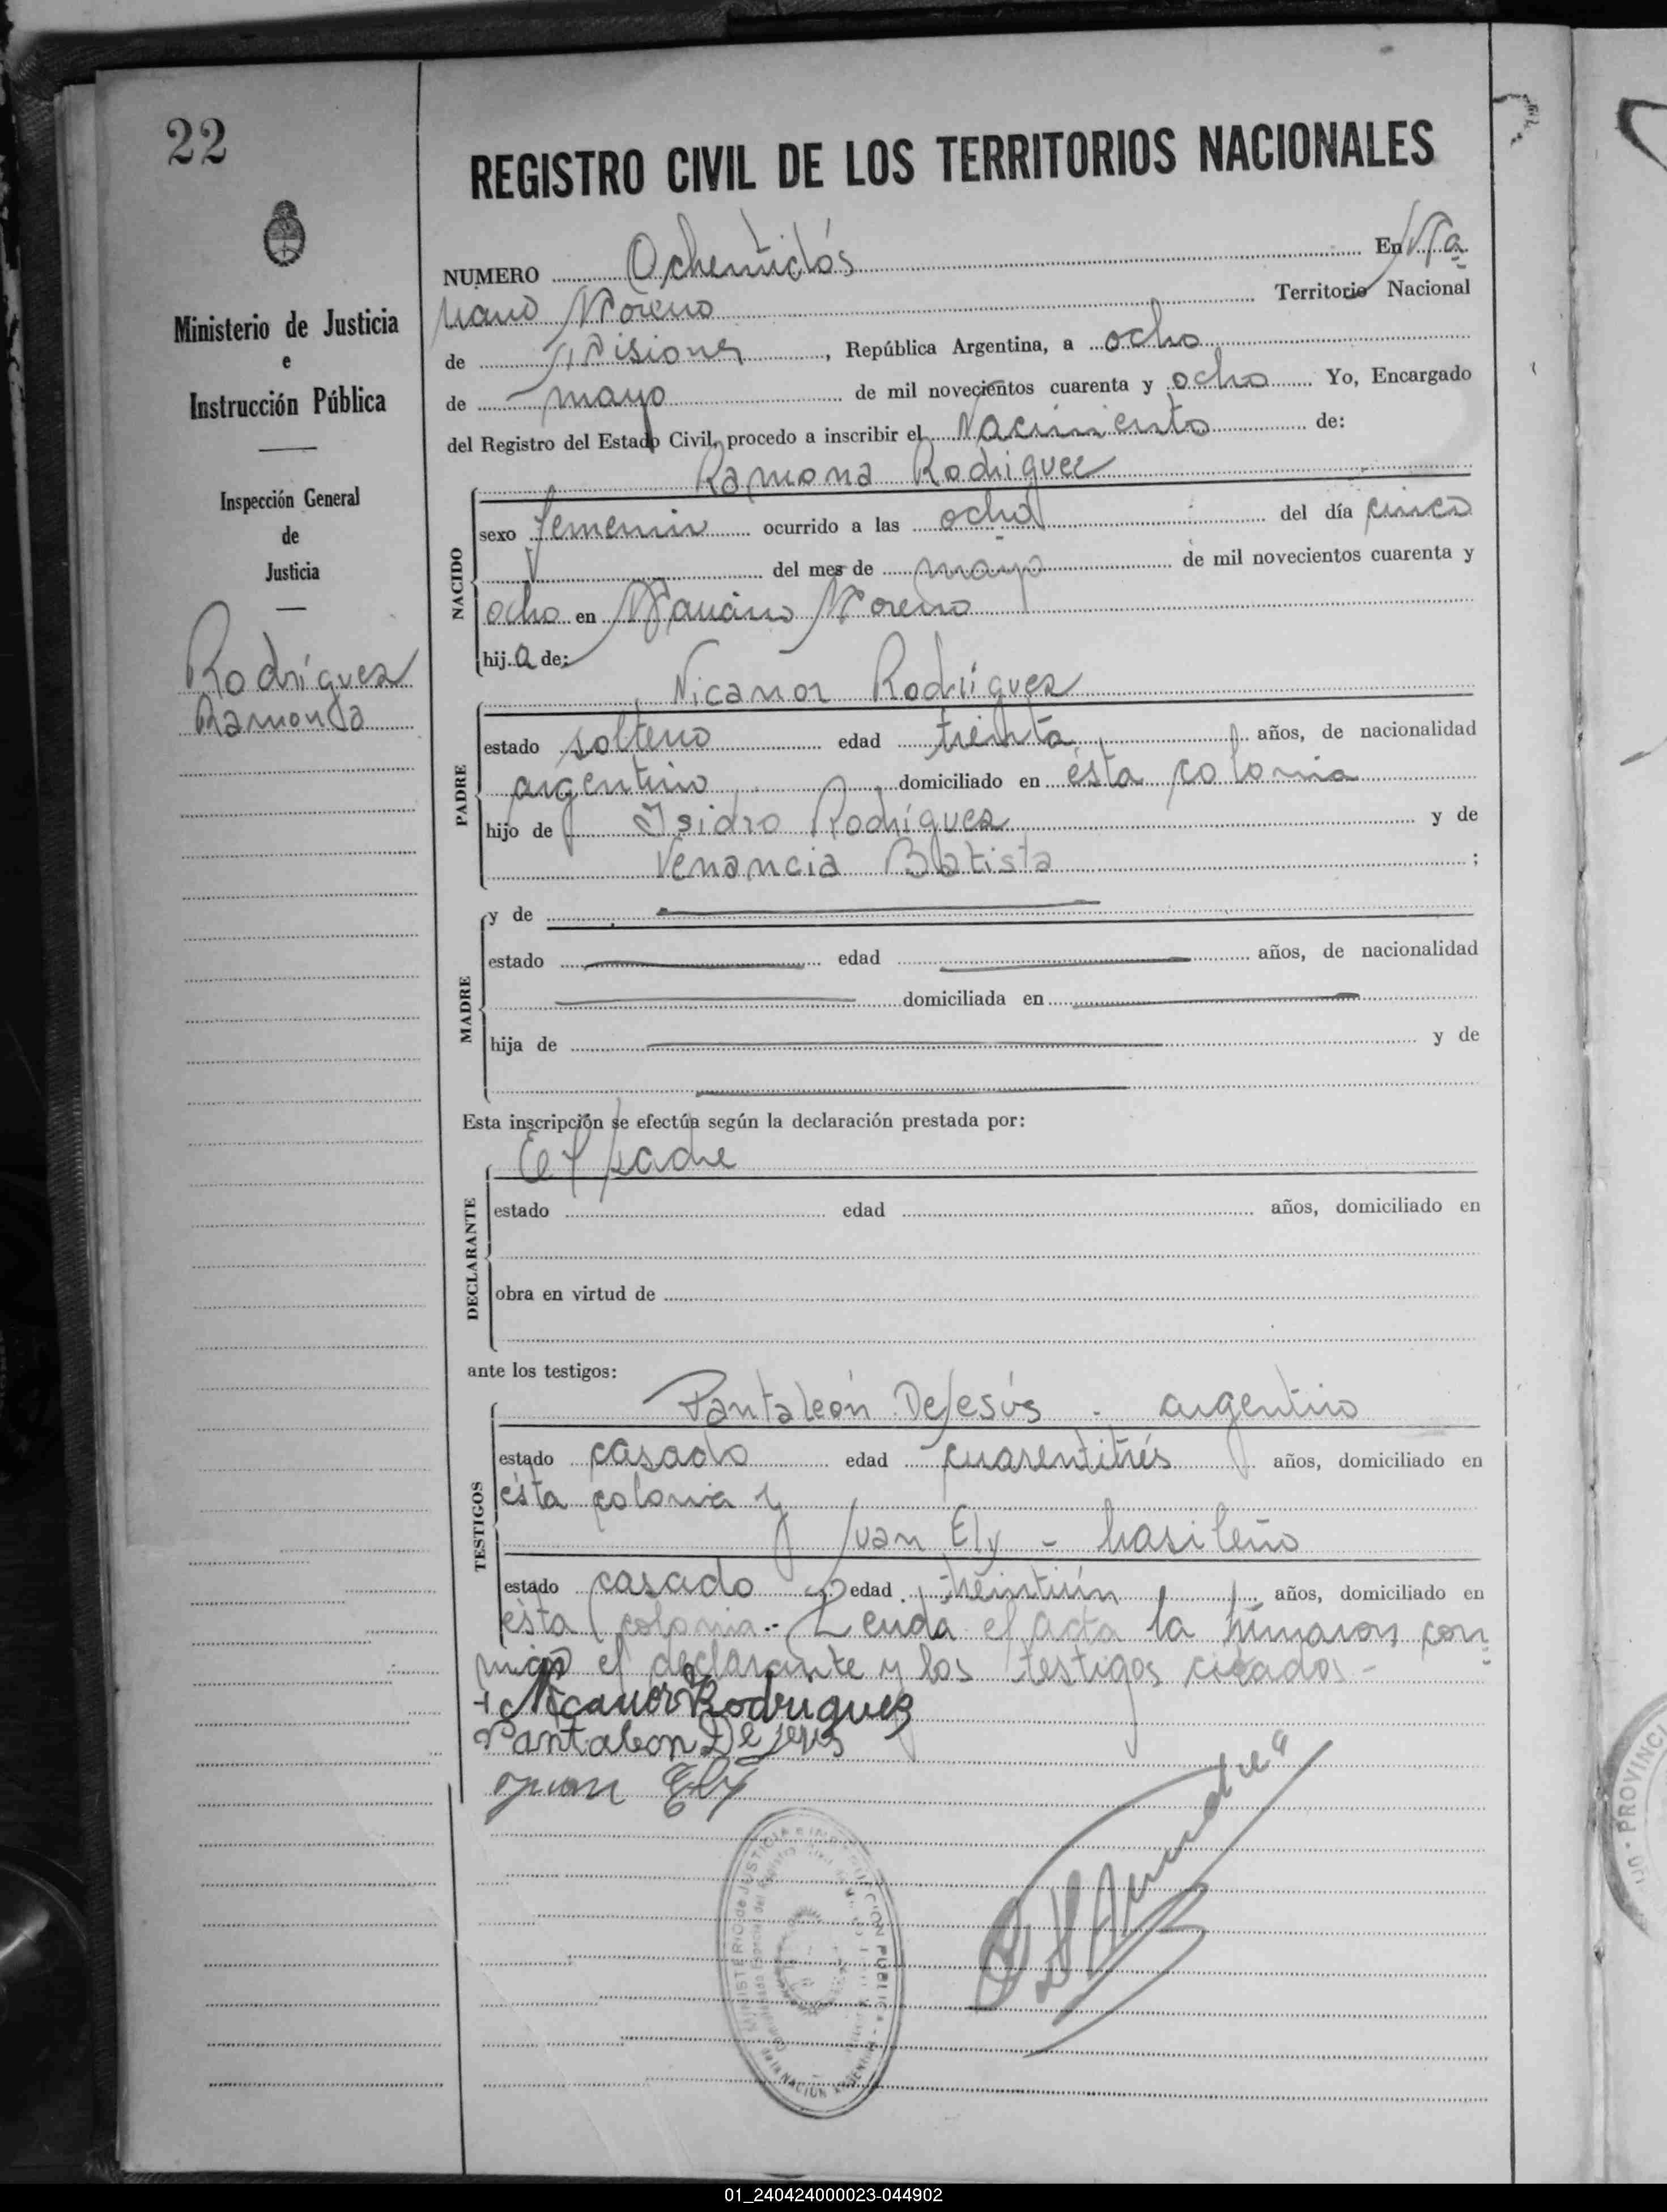 22
Ministerio de Justicia
e
Instrucción Pública
Inspección General
de
Justicia
Rodríguez
Ramona
REGISTRO CIVIL DE LOS TERRITORIOS NACIONALES
NUMERO Ochentidós En Ma
riano Moreno Territorio Nacional
de Misiones, República Argentina, a ocho
de mayo de mil novecientos cuarenta y ocho Yo, Encargado
del Registro del Estado Civil, procedo a inscribir el Nacimiento de:
Ramona Rodriguez
NACIDO
sexo femenino ocurrido a las ocho del día cinco
del mes de mayo de mil novecientos cuarenta y
ocho en Mariano Moreno
hija de:
Nicanor Rodríguez
PADRE
estado soltero edad treinta años, de nacionalidad
argentino domiciliado en ésta colonia
hijo de Isidro Rodríguez y de
Venancia Batista ;
MADRE
y de
estado edad años, de nacionalidad
domiciliada en
hija de y de
Esta inscripción se efectúa según la declaración prestada por:
El padre
DECLARANTE
estado edad años, domiciliado en
obra en virtud de
ante los testigos:
Pantaleón DeJesús - argentino
TESTIGOS
estado casado edad cuarentitrés años, domiciliado en
ésta colonia y
Juan Ely - brasileño
estado casado edad treintiún años, domiciliado en
ésta colonia.- Leída el acta la firmaron con-
migo el declarante y los testigos citados -
Nicanor Rodriguez
Pantaleon De Jesus
Juan Ely
MINISTERIO de JUSTICIA e INSTRUCCIÓN PUBLICA
de la NACION ARGENTINA
PROVINCI
01_240424000023-044902